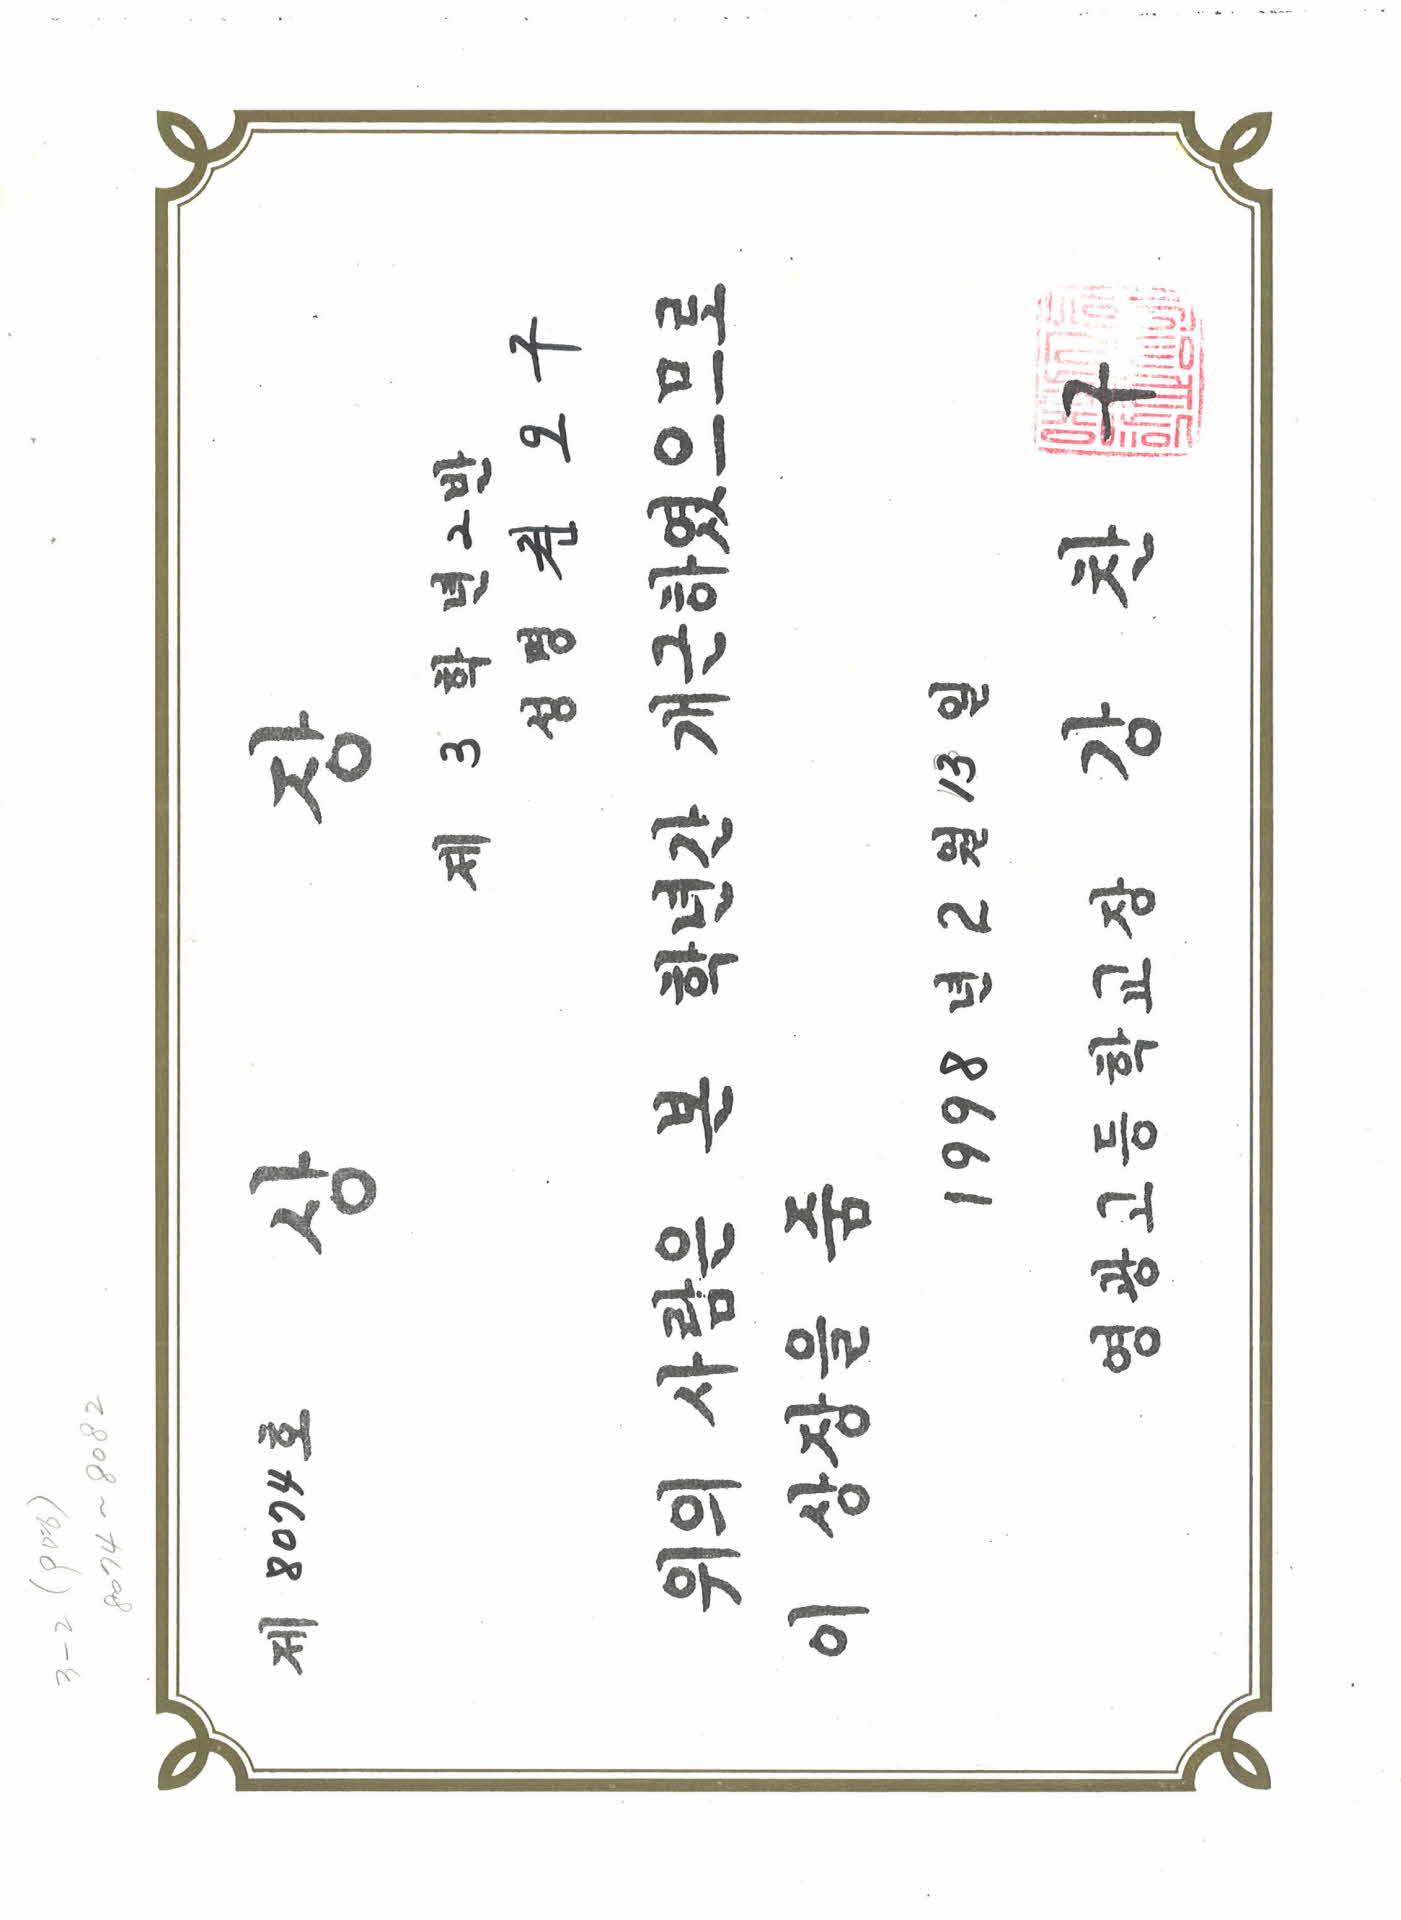 3-2
8074~8082
제 8074호
상 장
제 3 학 년 2 반
성 명 권 오 구
위의 사람은 본 학년간 개근하였으므로
이 상장을 줌
1998 년 2 월 13 일
영광고등학교장 강 찬 구